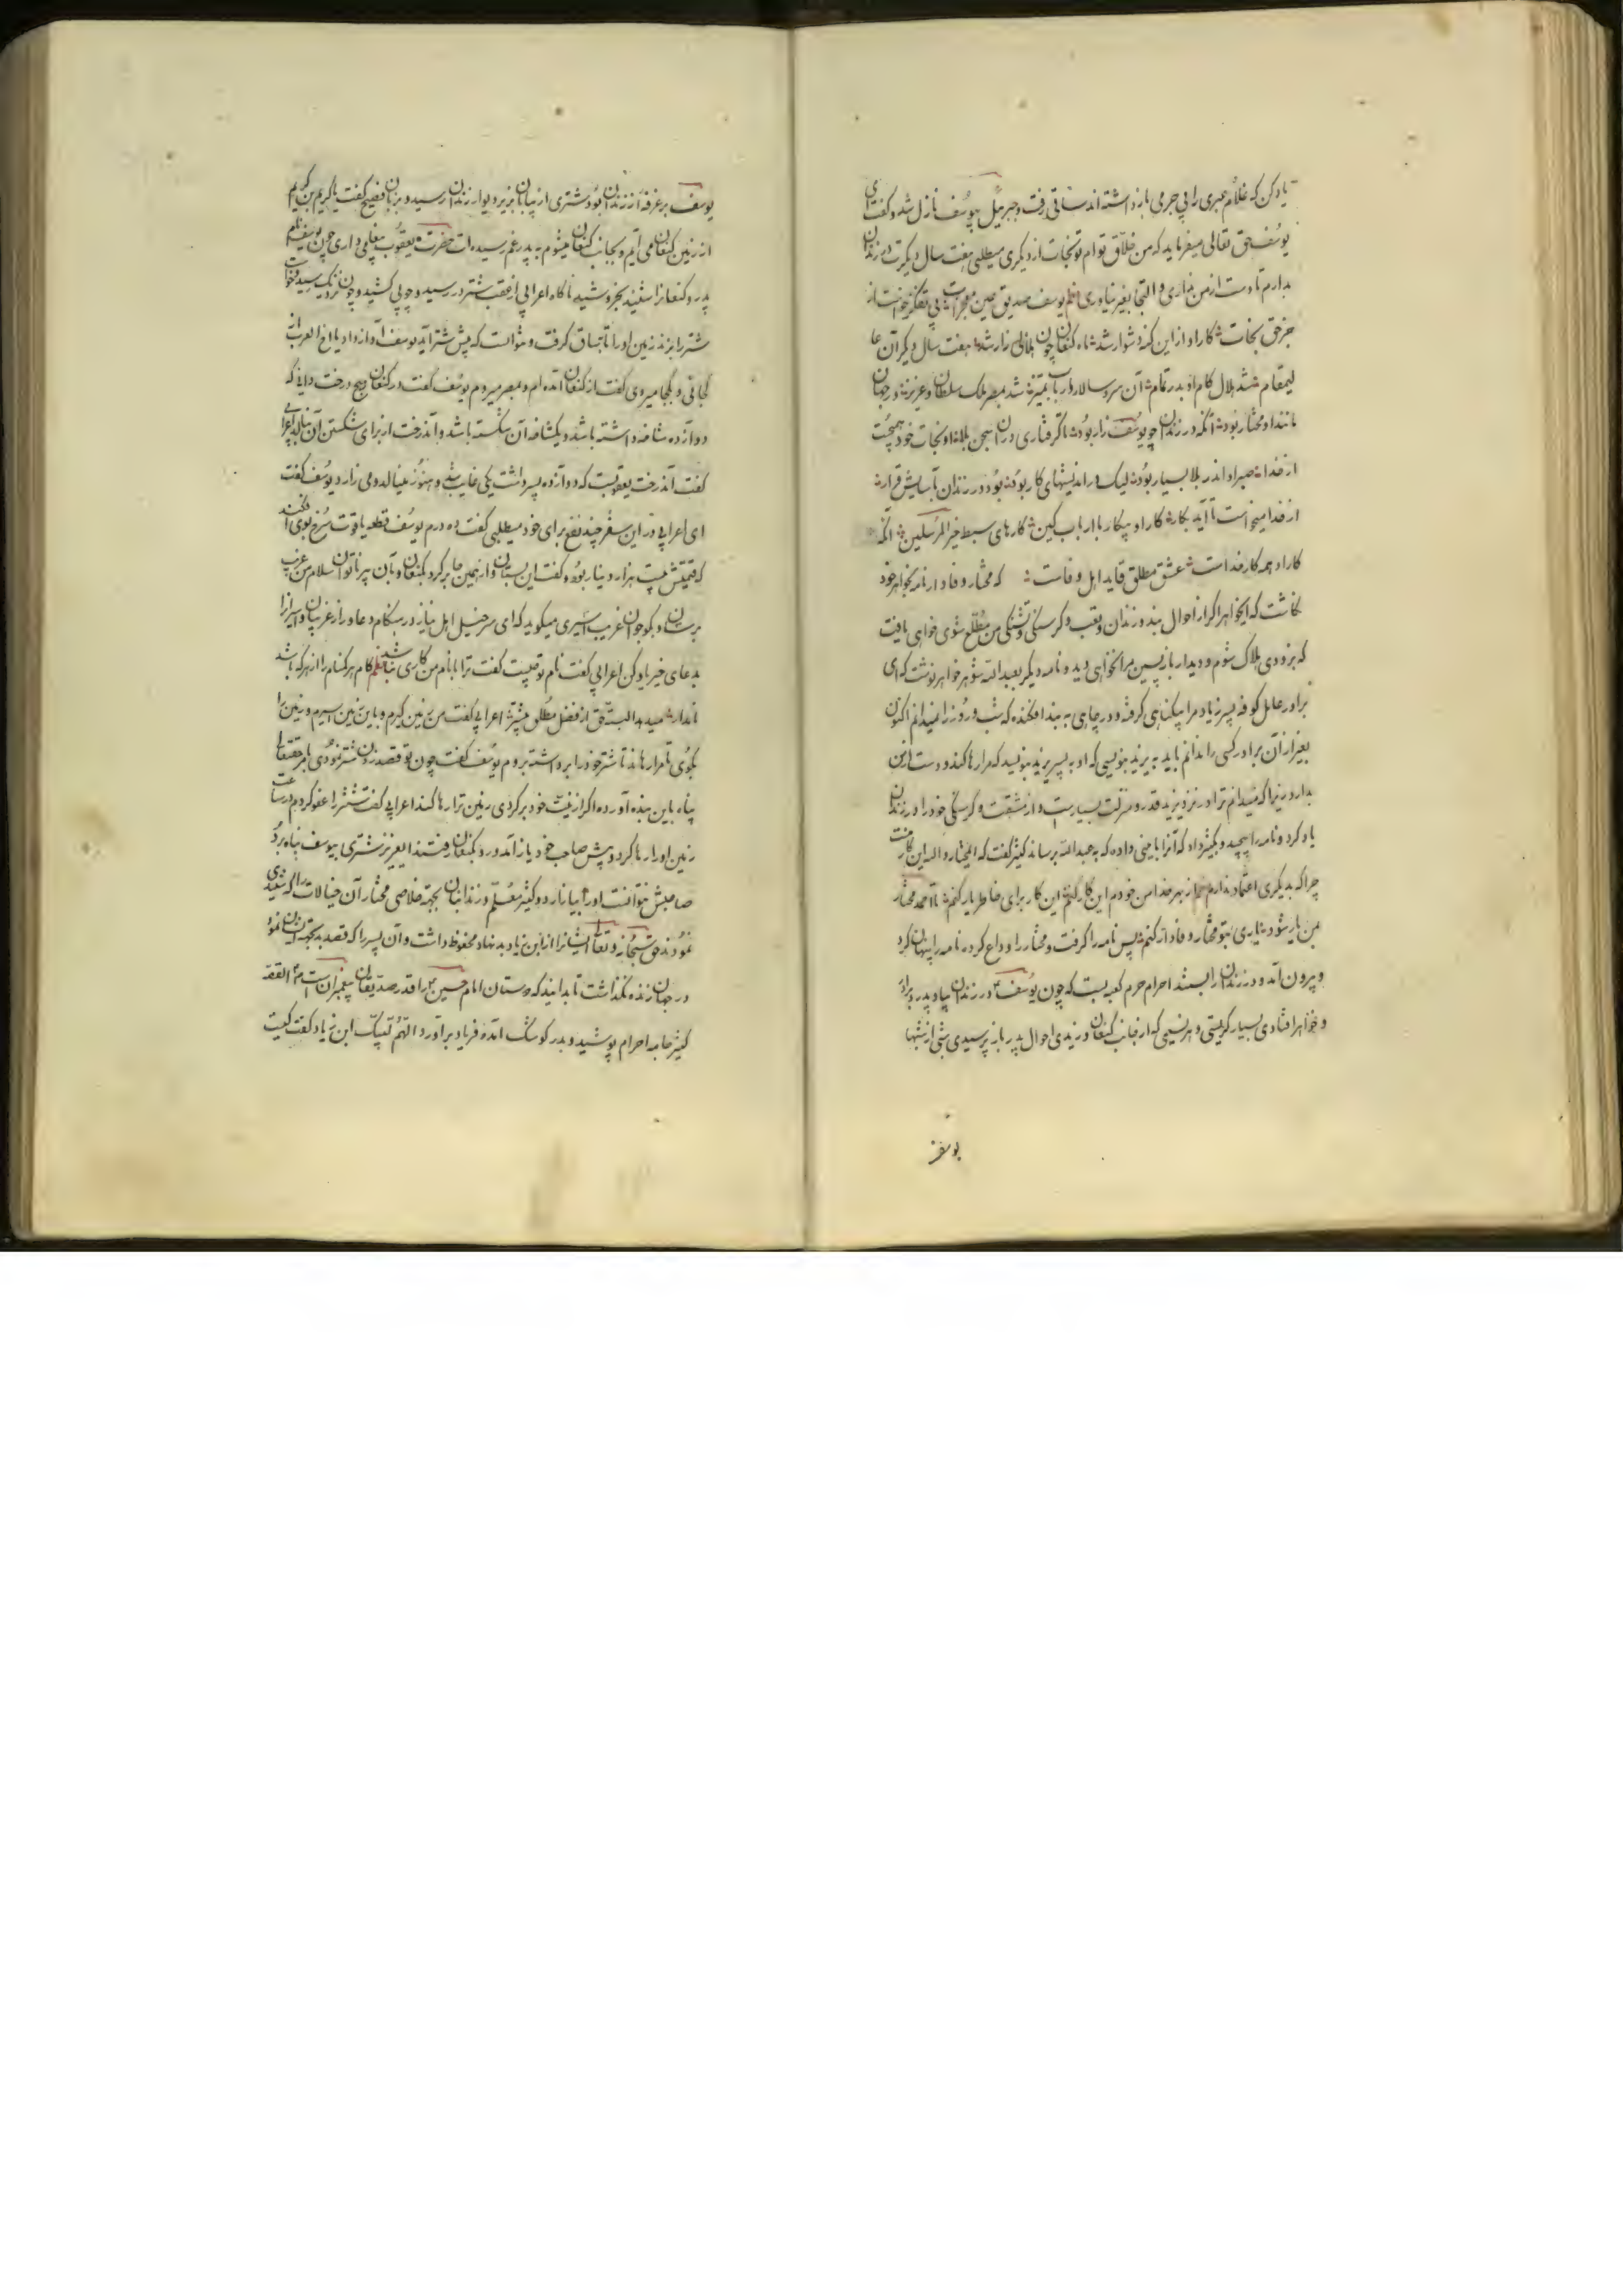 یاد کن که غلام عبری را بی جرمی بازداشته اند ساقی رفت و جبرئیل بیوسف نازل شد و گفت ای
یوسف حق تعالی میفرماید که من خلاق توام تو نجات از دیگری میطلبی هفت سال دیگرت در زندان
بدارم تا دست از من نداری و التجا بغیر نیاوری نظم یوسف صدیق بی تفکر خواست از
جز حق نجات کار او از این گنه دشوار شد شاه کنعان چون هلالی زار شد هفت سال دیگر آن عا
لیمقام شد هلال کام او بدر تمام آن سر و سالار ارباب تمیز شد بمصر ملک سلطان و عزیز در جهان
مانند او مختار بود آنکه در زندان چو یوسف زار بود تا گرفتاری در آن سجن بلا او نجات خود بجست
از خدا صبر او اندر بلا بسیار بود لیک در اندیشهای کار بود بود در زندان بآسایش قرار
از خدا میخواست تا آید بکار کار او پیکار با ارباب کین کارهای سبط خیر المرسلین آنکه
کار او همه کار خداست عشق مطلق قاید اهل وفاست که مختار وفادار نامه بخواهر خود
نگاشت که ایخواهر اگر از احوال بند و زندان و تعب و گرسنگی و تشنگی من مطلع شوی خواهی یافت
که بزودی هلاک شوم و دیدار بازپسین مرا نخواهی دید و نامه دیگر بعبدالله شوهر خواهر نوشت که ای
برادر عامل کوفه پسر زیاد مرا بیگناهی گرفته و در چاهی به بند افکنده که شب و روز را نمیدانم اکنون
بغیر از آن برادر کسی را ندانم باید به یزید بنویسی که او به پسر زیاد بنویسد که مرا رها کند و دست از من
بدارد زیرا که میدانم ترا در نزد یزید قدر و منزلت بسیارست و از مشقت و گرسنگی خود را در زندان
یاد کرد و نامه را پیچید و بکثیر داد که آنرا بامینی داده که به عبدالله برساند کثیر گفت که ایمختار والله این کار منست
چرا که بدیگری اعتماد ندارم از بهر خدا من خودم این کار کنم این کار برای خاطر یار کنم تا احمد مختار
من یار شود یاری بتو مختار وفادار کنم پس نامه را گرفت و مختار را وداع کرده نامه را پنهان کرد
و بیرون آمد و در زندان را ببست احرام حرم کعبه بست که چون یوسف در زندان بیاد پدر و برادر
و خواهر افتادی بسیار گریستی و هر نسیمی که از جانب کنعان وزیدی احوال پدر باز پرسیدی شبی از شبها
یوسف
یوسف بر غرفه از زندان بود شتری از بیابان بزیر دیوار زندان رسید و بزبان فصیح گفت یا کریم بن کریم
از زمین کنعان می آیم و بجانب کنعان میشوم به پدر غم رسیده ات حضرت یعقوب پیغامی داری چون یوسف نام
پدر و کنعانرا شنید بخروشید ناگاه اعرابی از عقب شتر در رسید و چوبی کشید و چون نزدیک رسید و خواست
شتر را بزند زمین او را تا بساق گرفت و نتوانست که پیش شتر آید یوسف آواز داد یا اخ العرب از
کجائی و بکجا میروی گفت از کنعان آمده ام و بمصر میروم یوسف گفت در کنعان هیچ درخت دانی که
دوازده شاخه داشته باشد و یکشاخه آن شکسته باشد و آندرخت از برای شکستن آن بنالد اعرابی
گفت آندرخت یعقوبست که دوازده پسر داشت یکی غایب شد و هنوز مینالد و می زارد یوسف گفت
ای اعرابی در این سفر چند نفع برای خود میطلبی گفت ده درم یوسف قطعه یاقوت سرخ بوی افکند
که قیمتش بیست هزار دینار بود و گفت این بستان و از همین جا برگرد بکنعان و بآن پیر ناتوان سلام من غریب
برسان و بگو جوان غریب اسیری میگوید که ای سرخیل اهل نیاز در هنگام دعا و راز غریبان و اسیرانرا
بدعای خیر یاد کن اعرابی گفت نام تو چیست گفت ترا با نام من کاری نباشد نظم کام هر گمنام را از هر که باشد
البته حق از فضل مطلق میشتر اعرابی گفت من زمین گیرم و باین زمین اسیرم و زمین را
بگوی تا مرا رهاند تا شتر خود را برداشته بروم یوسف گفت چون تو قصد زدن شتر نمودی بامر حقتعالی
پناه باین بنده آورده اگر از نیت خود برگردی زمین ترا رها کند اعرابی گفت شتر را عفو کردم در ساعت
زمین او را رها کرد و پیش صاحب خود باز آمد و رو بکنعان رفتند ایعزیز شتری بیوسف پناه برد
صاحبش نتوانست او را بیازارد و کثیر معلم و زندانبان بجهة خلاصی مختار آن خیالات را که شنیدی
نمودند حق سبحانه و تعالی ایشانرا از ابن زیاد بد نهاد محفوظ داشت و آن پسر را که قصد بد بجهة ایشان نمود
در جهان زنده نگذاشت تا بدانید که دوستان امام حسین را قدر صدیقان پیغمبران است القصه
کثیر جامه احرام پوشید و بدر کوشک آمده فریاد برآورد اللهم لبیک ابن زیاد گفت کیست